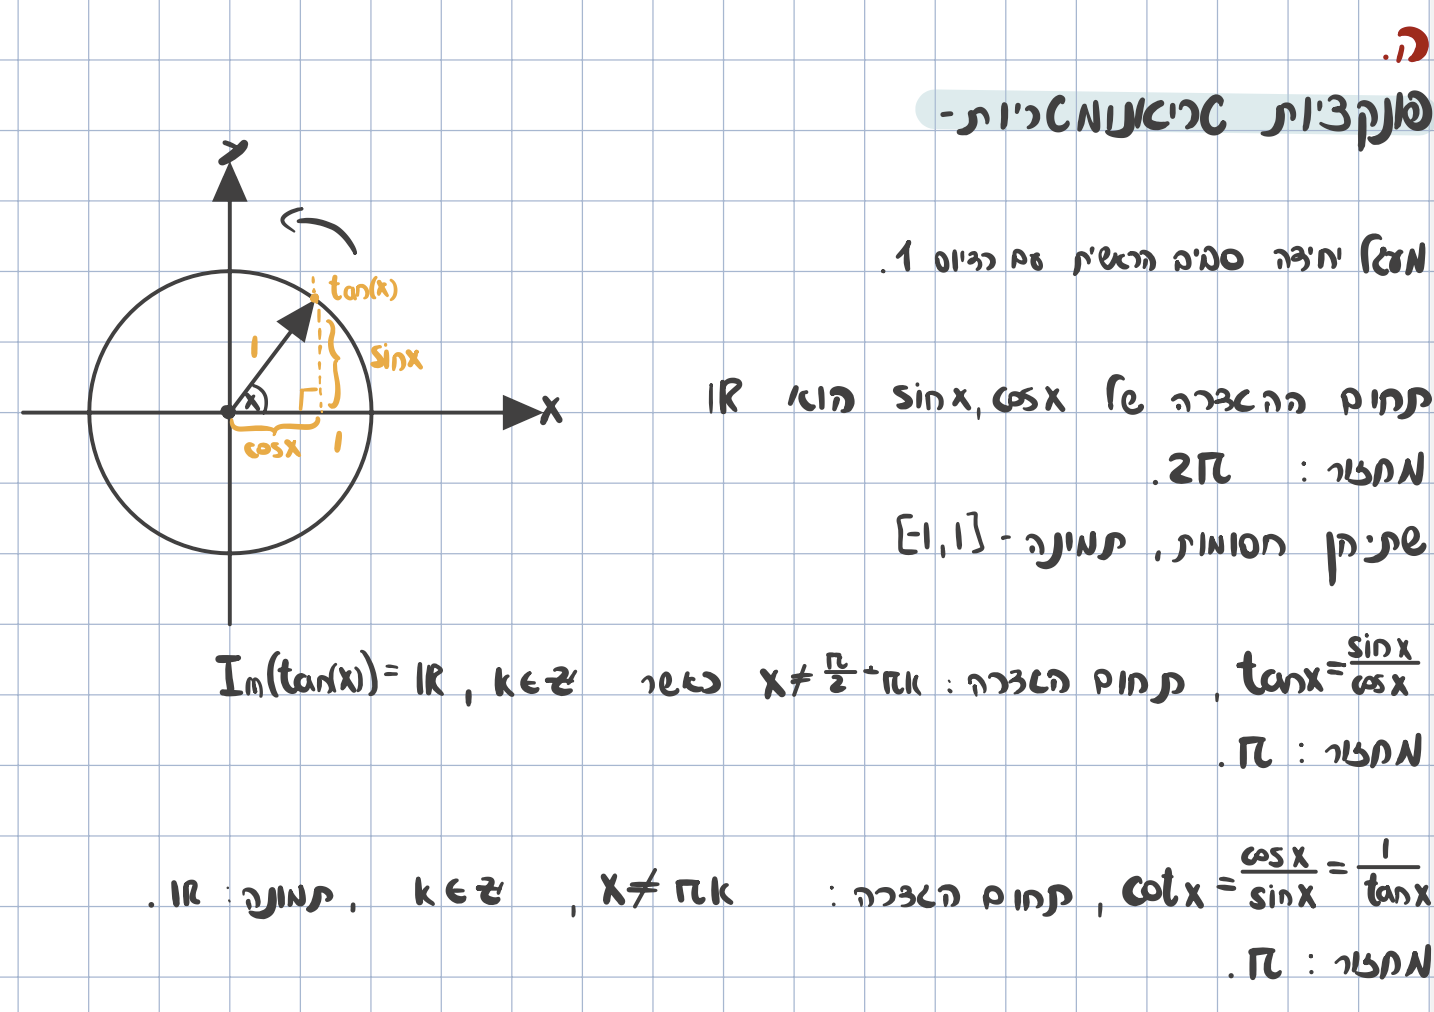 ה.
פונקציות טריגונומטריות-
מעגל יחידה סביב הראשית עם רדיוס 1.
תחום ההגדרה של sin x, cos x הוא ℝ
מחזור: 2π.
שתיהן חסומות, תמונה - [-1,1]
tan x = sin x / cos x, תחום הגדרה: x ≠ π/2 + πk כאשר k ∈ ℤ, Im(tan(x)) = ℝ
מחזור: π.
cot x = cos x / sin x = 1 / tan x, תחום הגדרה: x ≠ πk, k ∈ ℤ, תמונה: ℝ.
מחזור: π.
y
tan(x)
1
sin x
x
x
cos x
1